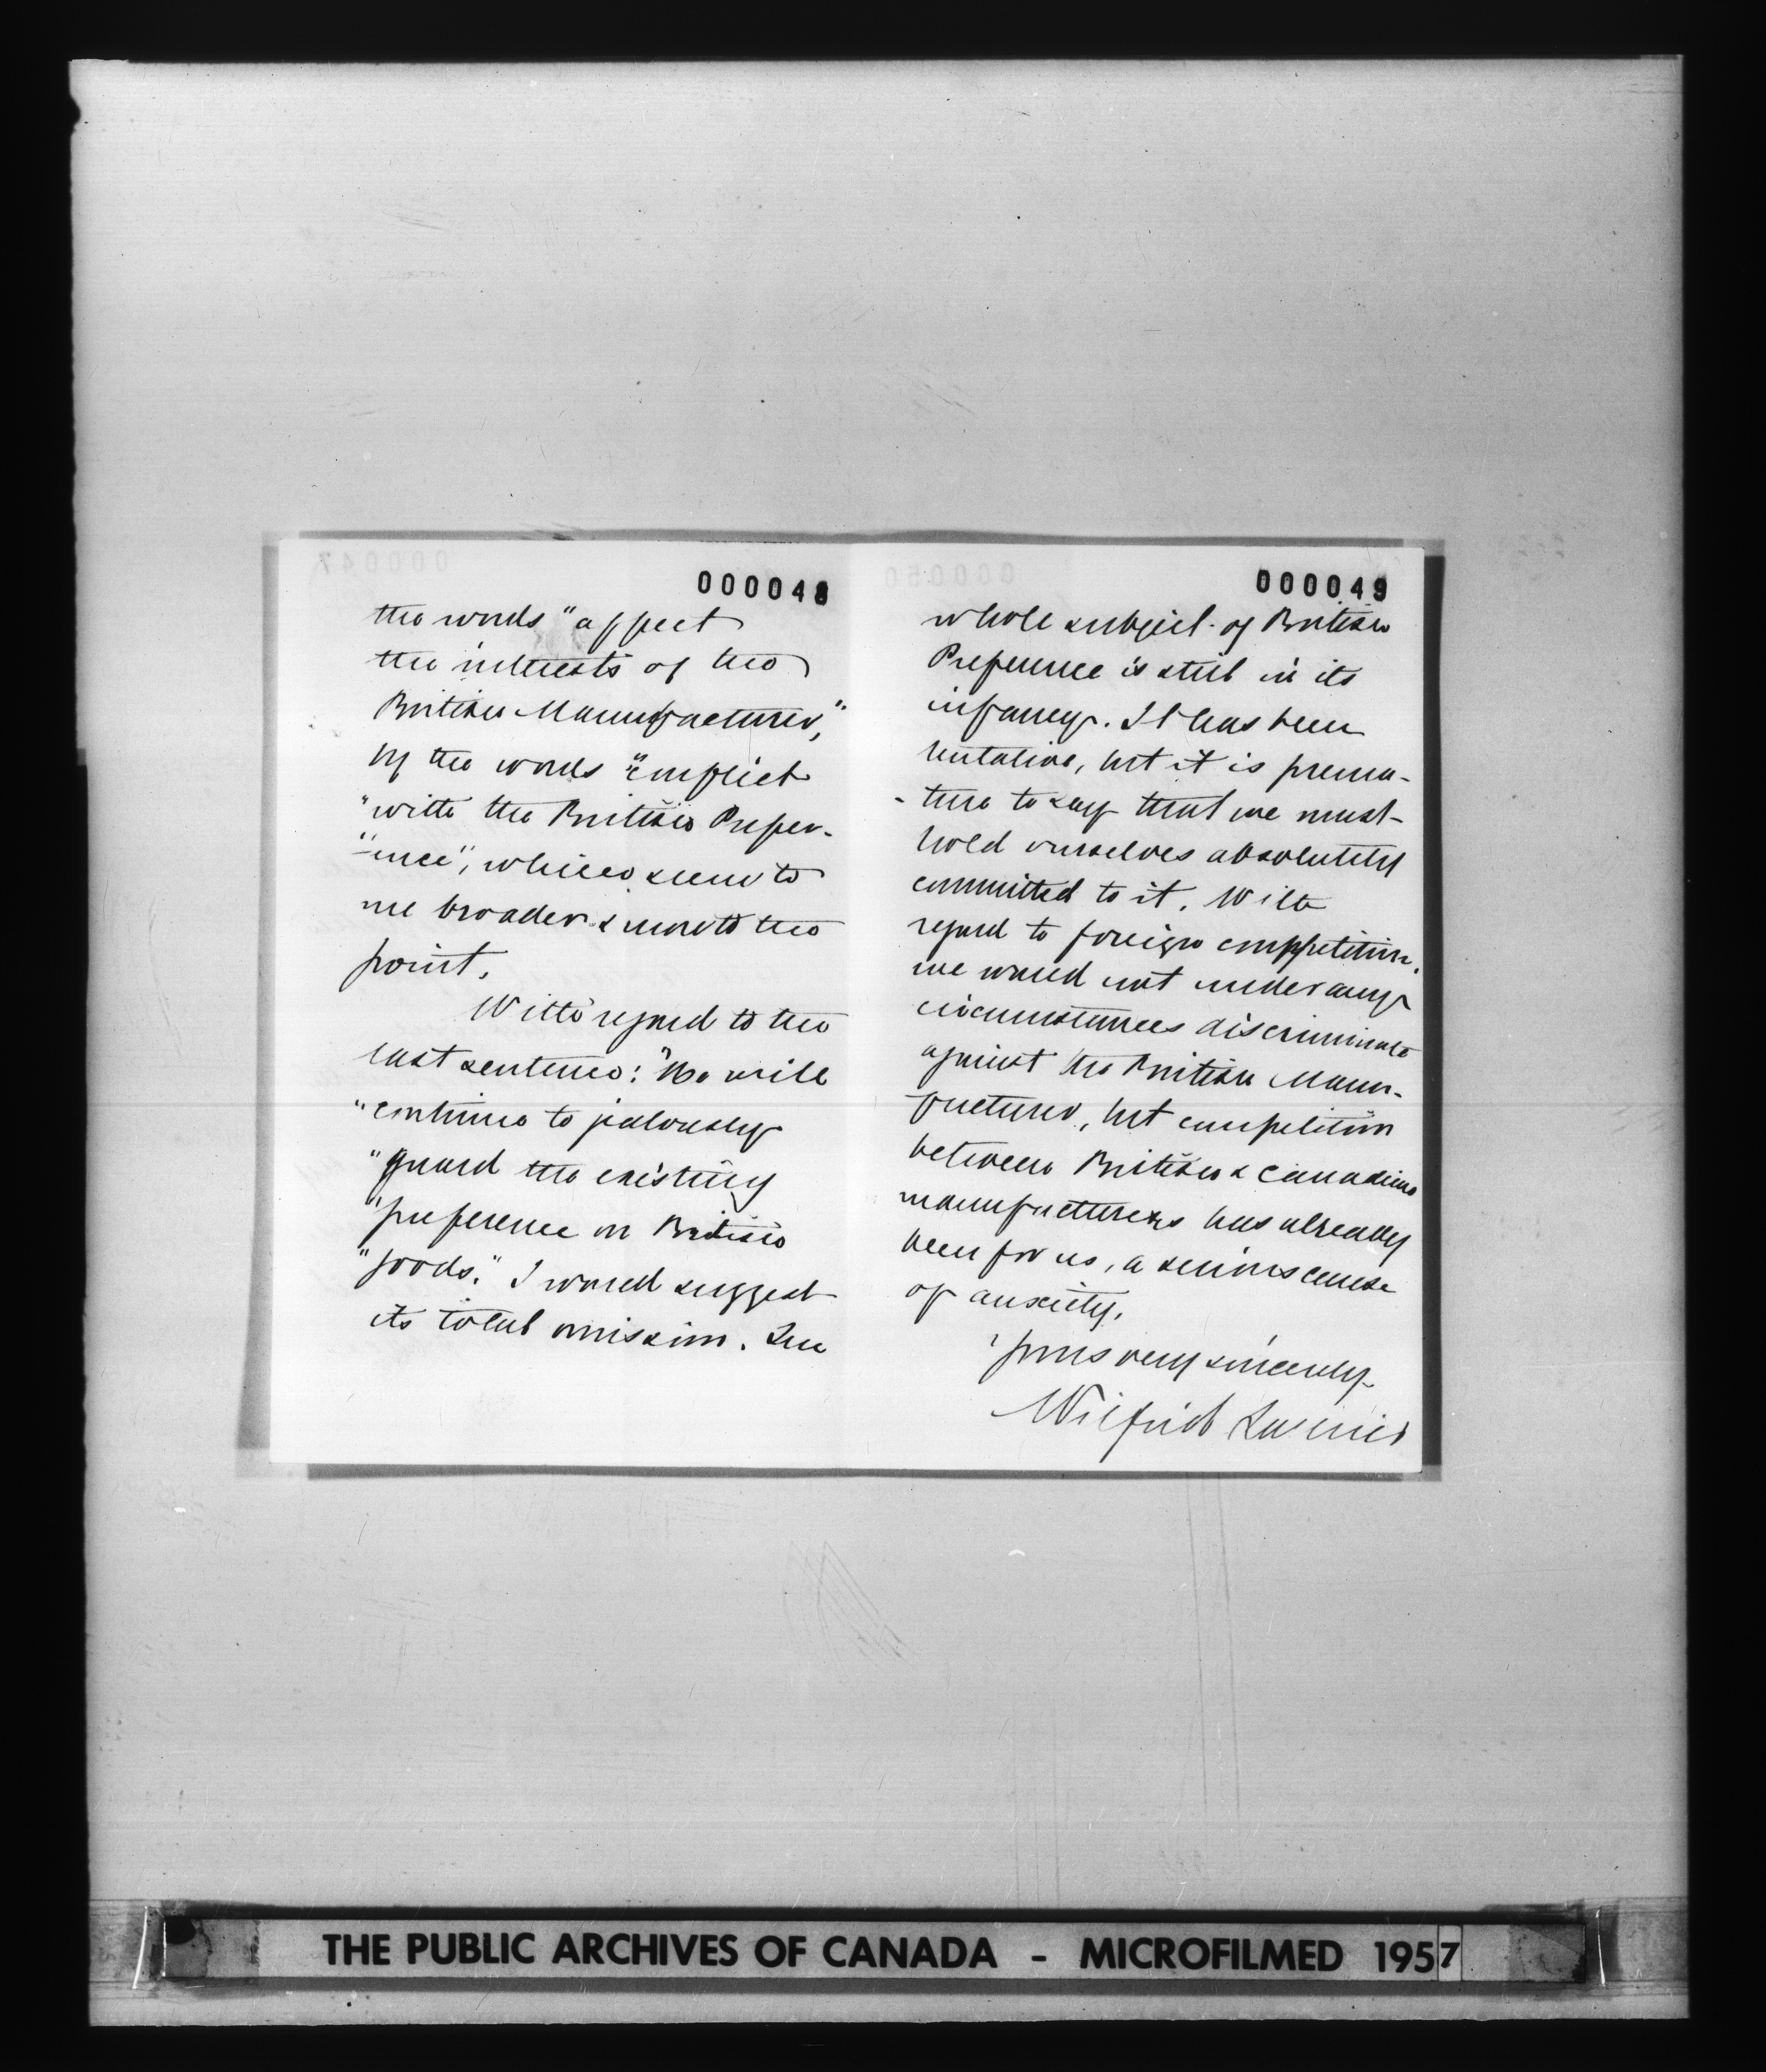 000048
the words "affect
the interests of the
British Manufacturer,"
by the words "conflict
"with the British Prefer-
"ence", which seem to
me broader & more to the
point.
With regard to the
last sentence: "We will
"continue to jealously
"guard the existing
"preference on British
"goods." I would suggest
its total omission. The
000049
whole subject of British
Preference is still in its
infancy. It has been
tentative, but it is prema-
-ture to say that we must
hold ourselves absolutely
committed to it. With
regard to foreign competition,
we would not under any
circumstances discriminate
against the British Manu-
facturer, but competition
between British & Canadian
manufacturers has already
been for us, a serious cause
of anxiety.
Yours very sincerely
Wilfrid Laurier
THE PUBLIC ARCHIVES OF CANADA - MICROFILMED 1957